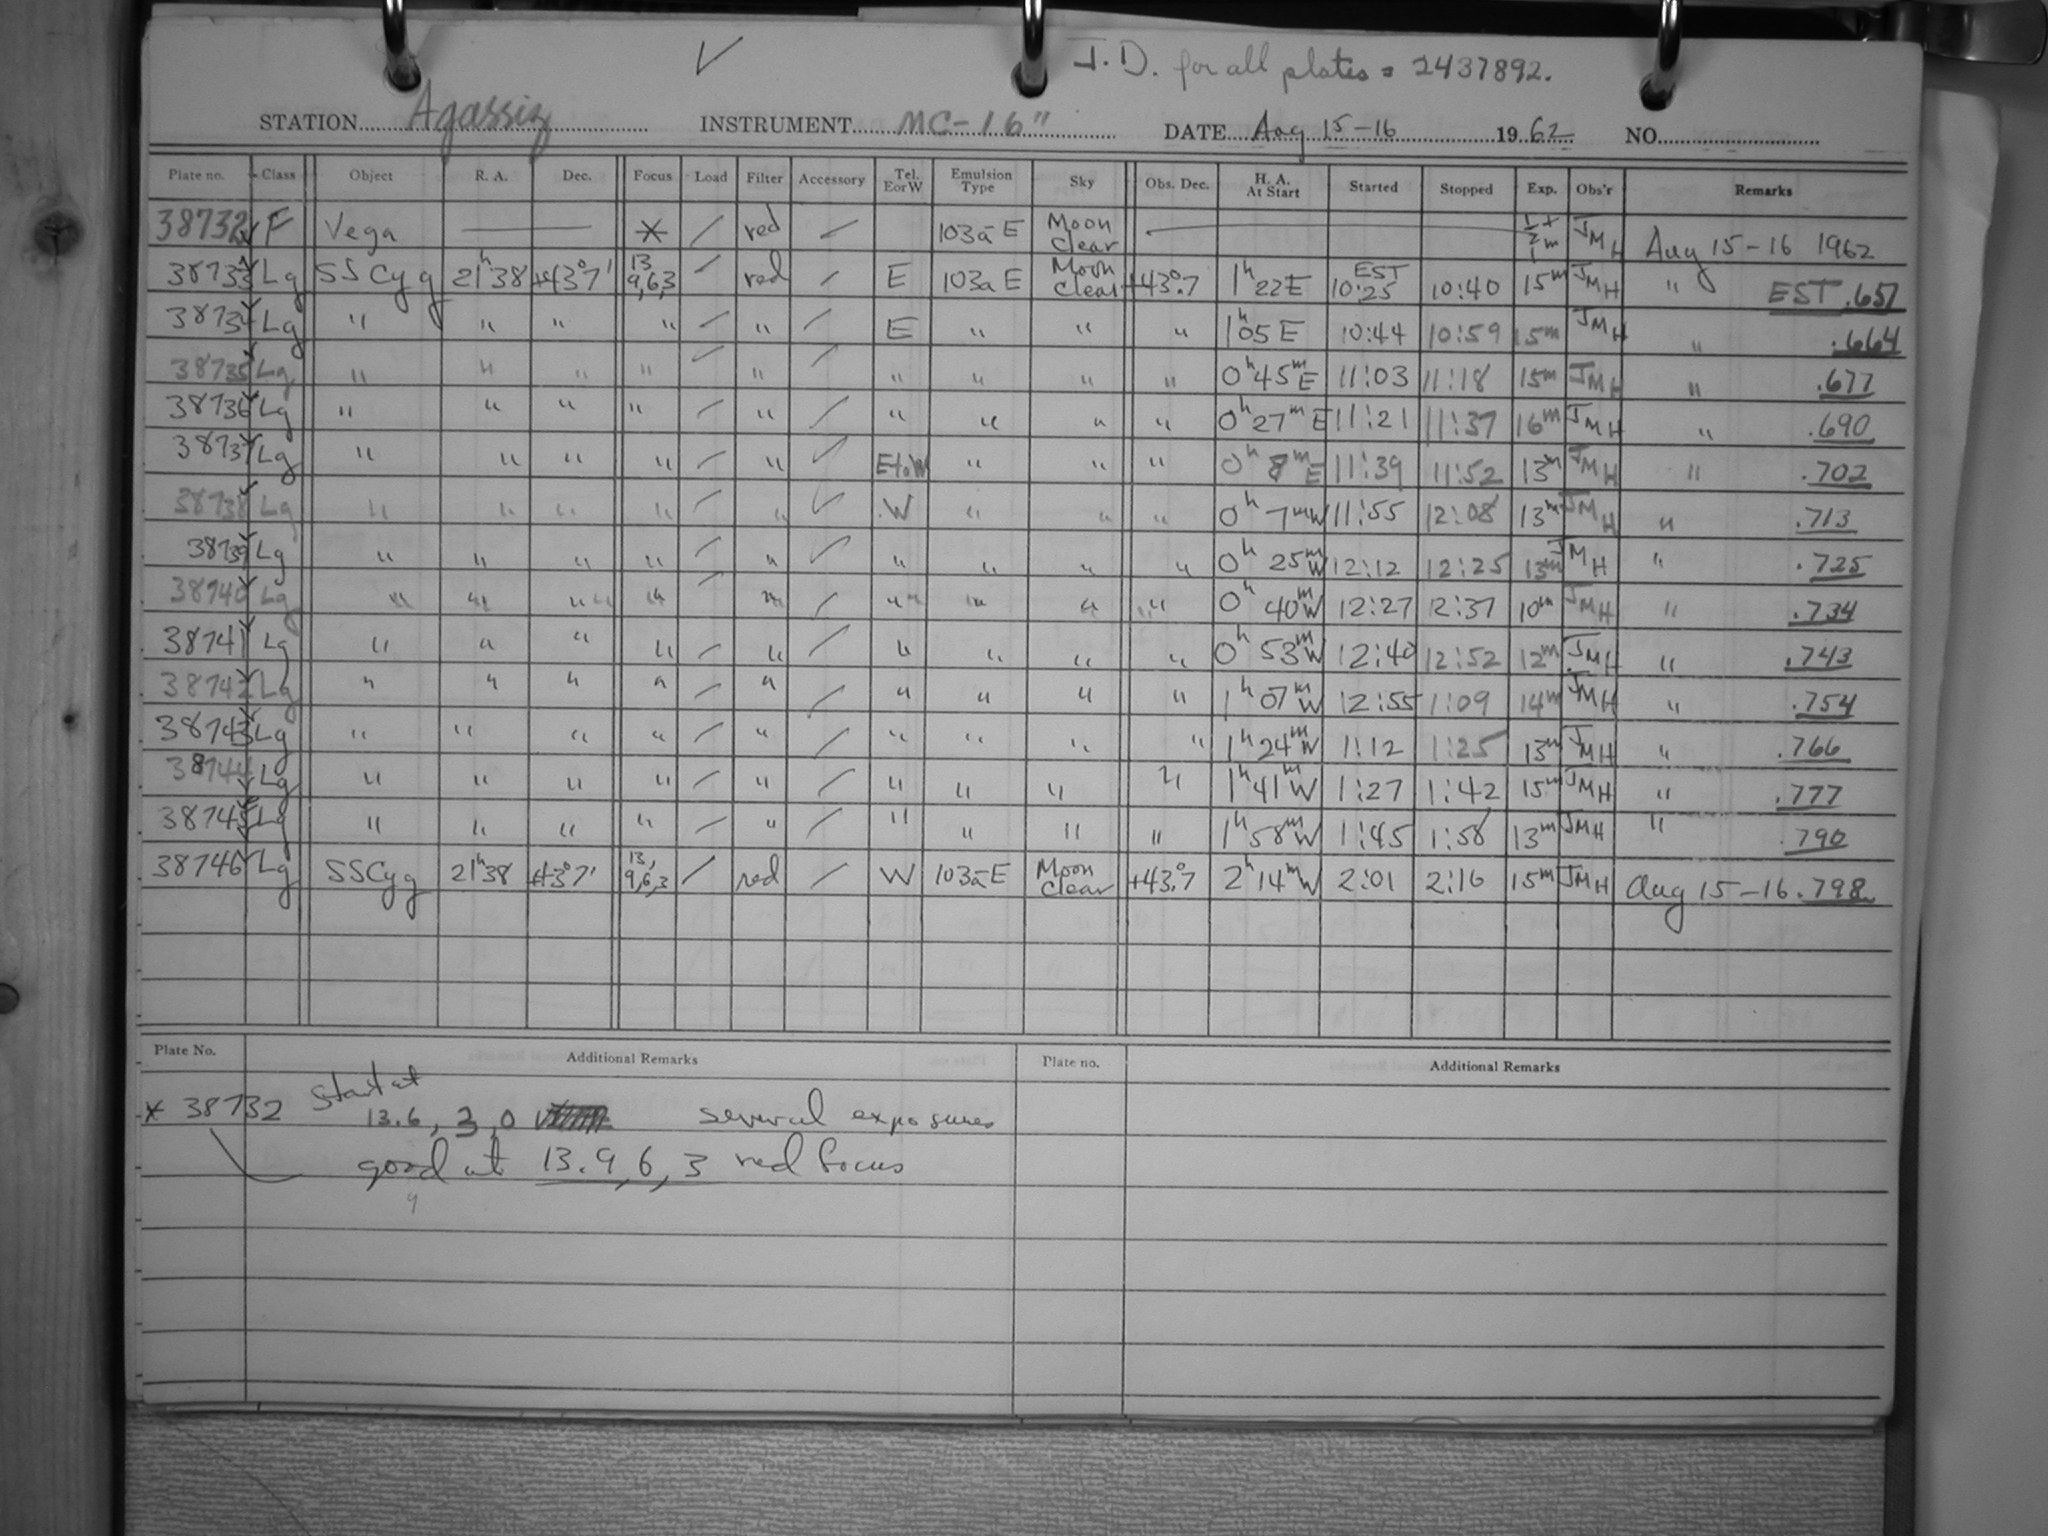 J.D. for all plates = 2437892.
STATION Agassiz INSTRUMENT MC-16" DATE Aug 15-16 1962 NO.
Plate no. Class Object R. A. Dec. Focus Load Filter Accessory Tel. E or W Emulsion Type Sky Obs. Dec. H. A. At Start Started Stopped Exp. Obs'r Remarks
38732 F Vega — * / red / 103a-E Moon Clear — JMH Aug 15-16 1962
38733 Lg SS Cyg 21h38 +43°7' 13 9,6,3 / red / E 103aE Moon Clear +43°.7 1h22E EST 10:25 10:40 15m JMH " EST .657
38734 Lg " " " " / " / E " " " 1h05E 10:44 10:59 15m JMH " .664
38735 Lg " " " " / " / " " " " 0h45mE 11:03 11:18 15m JMH " .677
38736 Lg " " " " / " / " " " " 0h27mE 11:21 11:37 16m JMH " .690
38737 Lg " " " " / " / E to W " " " 0h8mE 11:39 11:52 13m JMH " .702
38738 Lg " " " " / " / W " " " 0h7mW 11:55 12:08 13m JMH " .713
38739 Lg " " " " / " / " " " " 0h25mW 12:12 12:25 13m JMH " .725
38740 Lg " " " " / " / " " " " 0h40mW 12:27 12:37 10m JMH " .734
38741 Lg " " " " / " / " " " " 0h53mW 12:40 12:52 12m JMH " .743
38742 Lg " " " " / " / " " " " 1h07mW 12:55 1:09 14m JMH " .754
38743 Lg " " " " / " / " " " " 1h24mW 1:12 1:25 13m JMH " .766
38744 Lg " " " " / " / " " " " 1h41mW 1:27 1:42 15m JMH " .777
38745 Lg " " " " / " / " " " " 1h58mW 1:45 1:58 13m JMH " .790
38746 Lg SSCyg 21h38 +43°7' 13, 9,6,3 / red / W 103a-E Moon Clear +43°.7 2h14mW 2:01 2:16 15m JMH Aug 15-16 .798
Plate No. Additional Remarks Plate no. Additional Remarks
* 38732 Start at 13.6, 3, 0 several exposures
good at 13.9, 6, 3 red focus